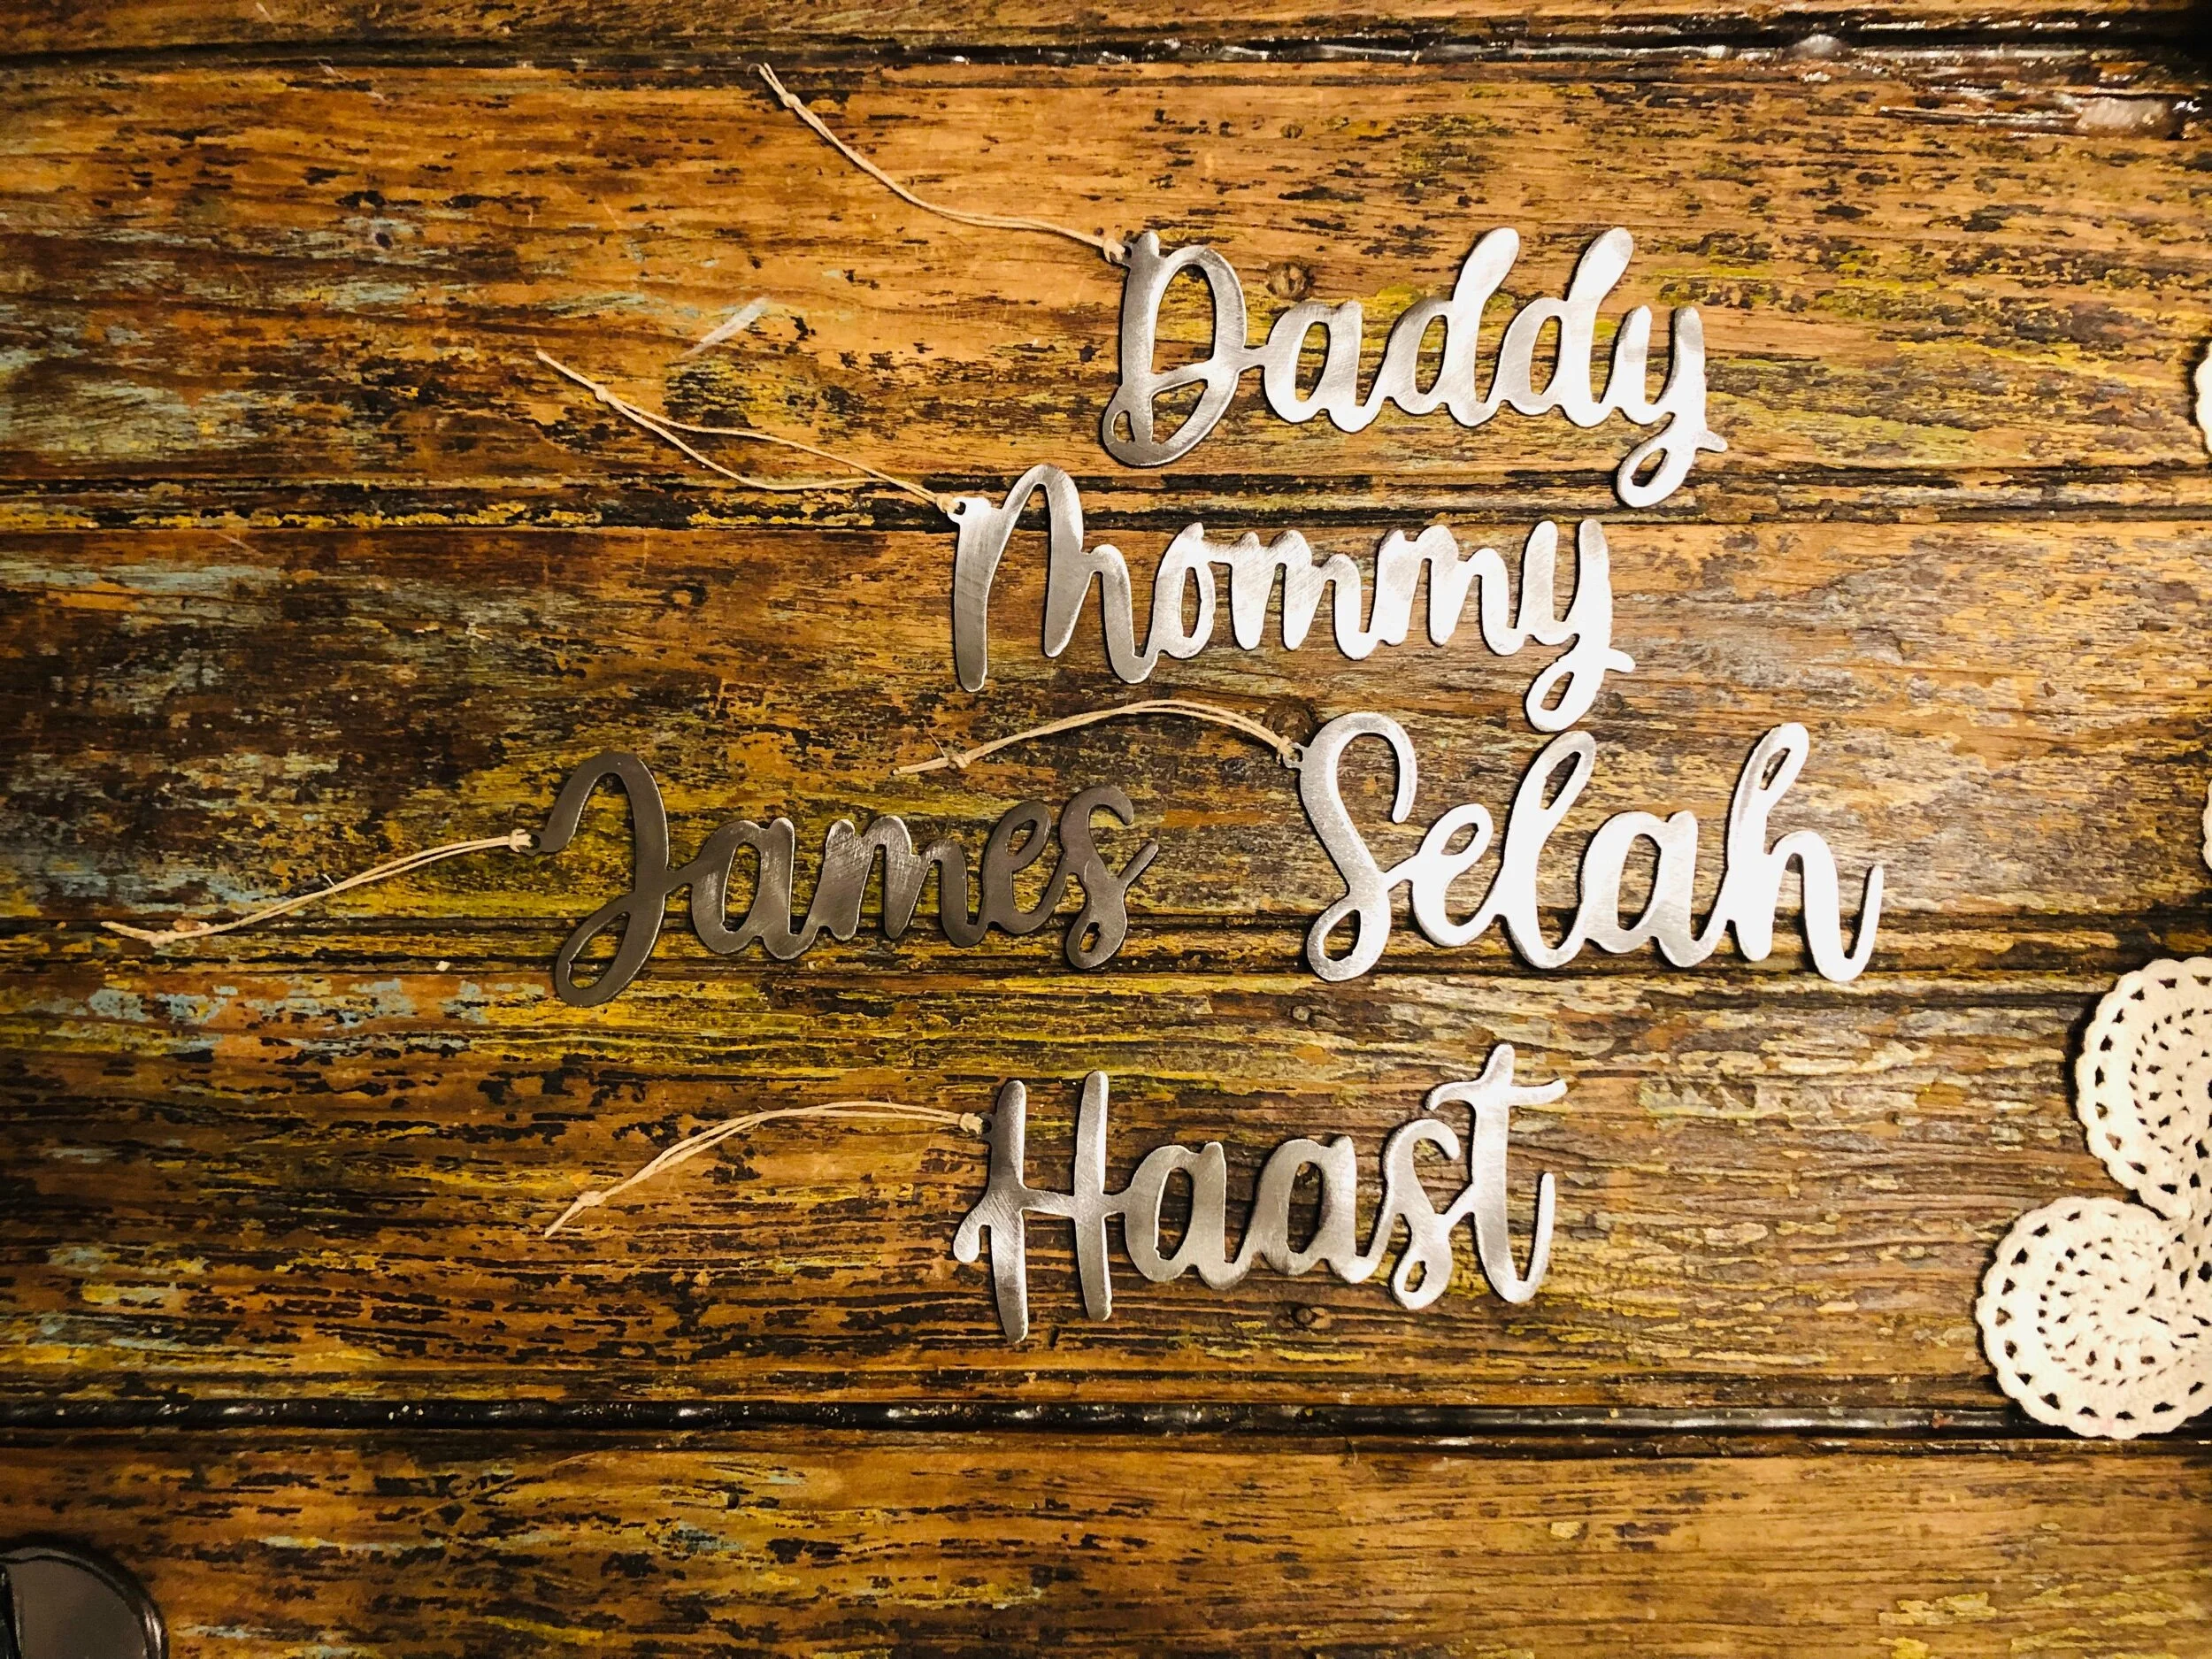 Daddy
Mommy
James Selah
Haast